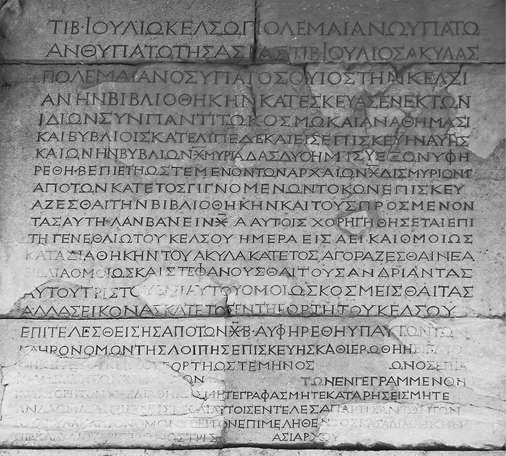 ΤΙΒ·ΙΟΥΛΙΩΚΕΛΣΩΠΟΛΕΜΑΙΑΝΩΥΠΑΤΩ
ΑΝΘΥΠΑΤΩΤΗΣΑΣΙΑΣΤΙΒΙΟΥΛΙΟΣΑΚΥΛΑΣ
ΠΟΛΕΜΑΙΑΝΟΣΥΠΑΤΟΣΟΥΙΟΣΤΗΝΚΕΛΣΙ
ΑΝΗΝΒΙΒΛΙΟΘΗΚΗΝΚΑΤΕΣΚΕΥΑΣΕΝΕΚΤΩΝ
ΙΔΙΩΝΣΥΝΠΑΝΤΙΤΩΚΟΣΜΩΚΑΙΑΝΑΘΗΜΑΣΙ
ΚΑΙΒΥΒΛΙΟΙΣΚΑΤΕΛΙΠΕΔΕΚΑΙΕΙΣΕΠΙΣΚΕΥΗΝΑΥΤΗΣ
ΚΑΙΩΝΗΝΒΥΒΛΙΩΝΧΜΥΡΙΑΔΑΣΔΥΟΗΜΙΣΥΕΞΩΝΥΦΗ
ΡΕΘΗ ΕΠΙΕΤΗΩΣΤΕΜΕΝΟΝΤΩΝΑΡΧΑΙΩΝΧΔΙΣΜΥΡΙΩΝΤ
ΑΠΟΤΩΝΚΑΤΕΤΟΣΓΙΓΝΟΜΕΝΩΝΤΟΚΩΝΕΠΙΣΚΕΥ
ΑΖΕΣΘΑΙΤΗΝΒΙΒΛΙΟΘΗΚΗΝΚΑΙΤΟΥΣΠΡΟΣΜΕΝΟΝ
ΤΑΣΑΥΤΗΛΑΝΒΑΝΕΙΝΧ Α ΑΥΤΟΙΣ ΧΟΡΗΓΗΘΗΣΕΤΑΙΕΠΙ
ΤΗΓΕΝΕΘΛΙΩΤΟΥΚΕΛΣΟΥΗΜΕΡΑΕΙΣΑΕΙΚΑΙΟΜΟΙΩΣ
ΚΑΤΑΔΙΑΘΗΚΗΝΤΟΥΑΚΥΛΑΚΑΤΕΤΟΣΑΓΟΡΑΖΕΣΘΑΙΝΕΑ
ΒΙΒΛΙΑΟΜΟΙΩΣΚΑΙΣΤΕΦΑΝΟΥΣΘΑΙΤΟΥΣΑΝΔΡΙΑΝΤΑΣ
ΑΥΤΟΥΤΡΙΣΤΟΥΕΝΙΑΥΤΟΥΟΜΟΙΩΣΚΟΣΜΕΙΣΘΑΙΤΑΣ
ΑΛΛΑΣΕΙΚΟΝΑΣΚΑΤΕΤΟΣΕΝΤΗΕΟΡΤΗΤΟΥΚΕΛΣΟΥ
ΕΠΙΤΕΛΕΣΘΕΙΣΗΣΑΠΟΤΩΝΧΒ·ΑΥΦΗΡΕΘΗΥΠΑΥΤΩΝΤΩΝ
ΚΛΗΡΟΝΟΜΩΝΤΗΣΛΟΙΠΗΣΕΠΙΣΚΕΥΗΣΚΑΘΙΕΡΩΘΗ
ΕΟΡΤΗΩΣΤΕΜΗΝΟΣ
ΤΩΝΕΝΓΕΓΡΑΜΜΕΝΩΝ
ΜΗΤΕΓΡΑΦΑΣΜΗΤΕΚΑΤΑΡΗΣΕΙΣΜΗΤΕ
ΑΥΤΟΙΣΕΝΤΕΛΕΣΑ
ΕΠΙΜΕΛΗΘΕ
ΑΣΙΑΡΧΟΥ